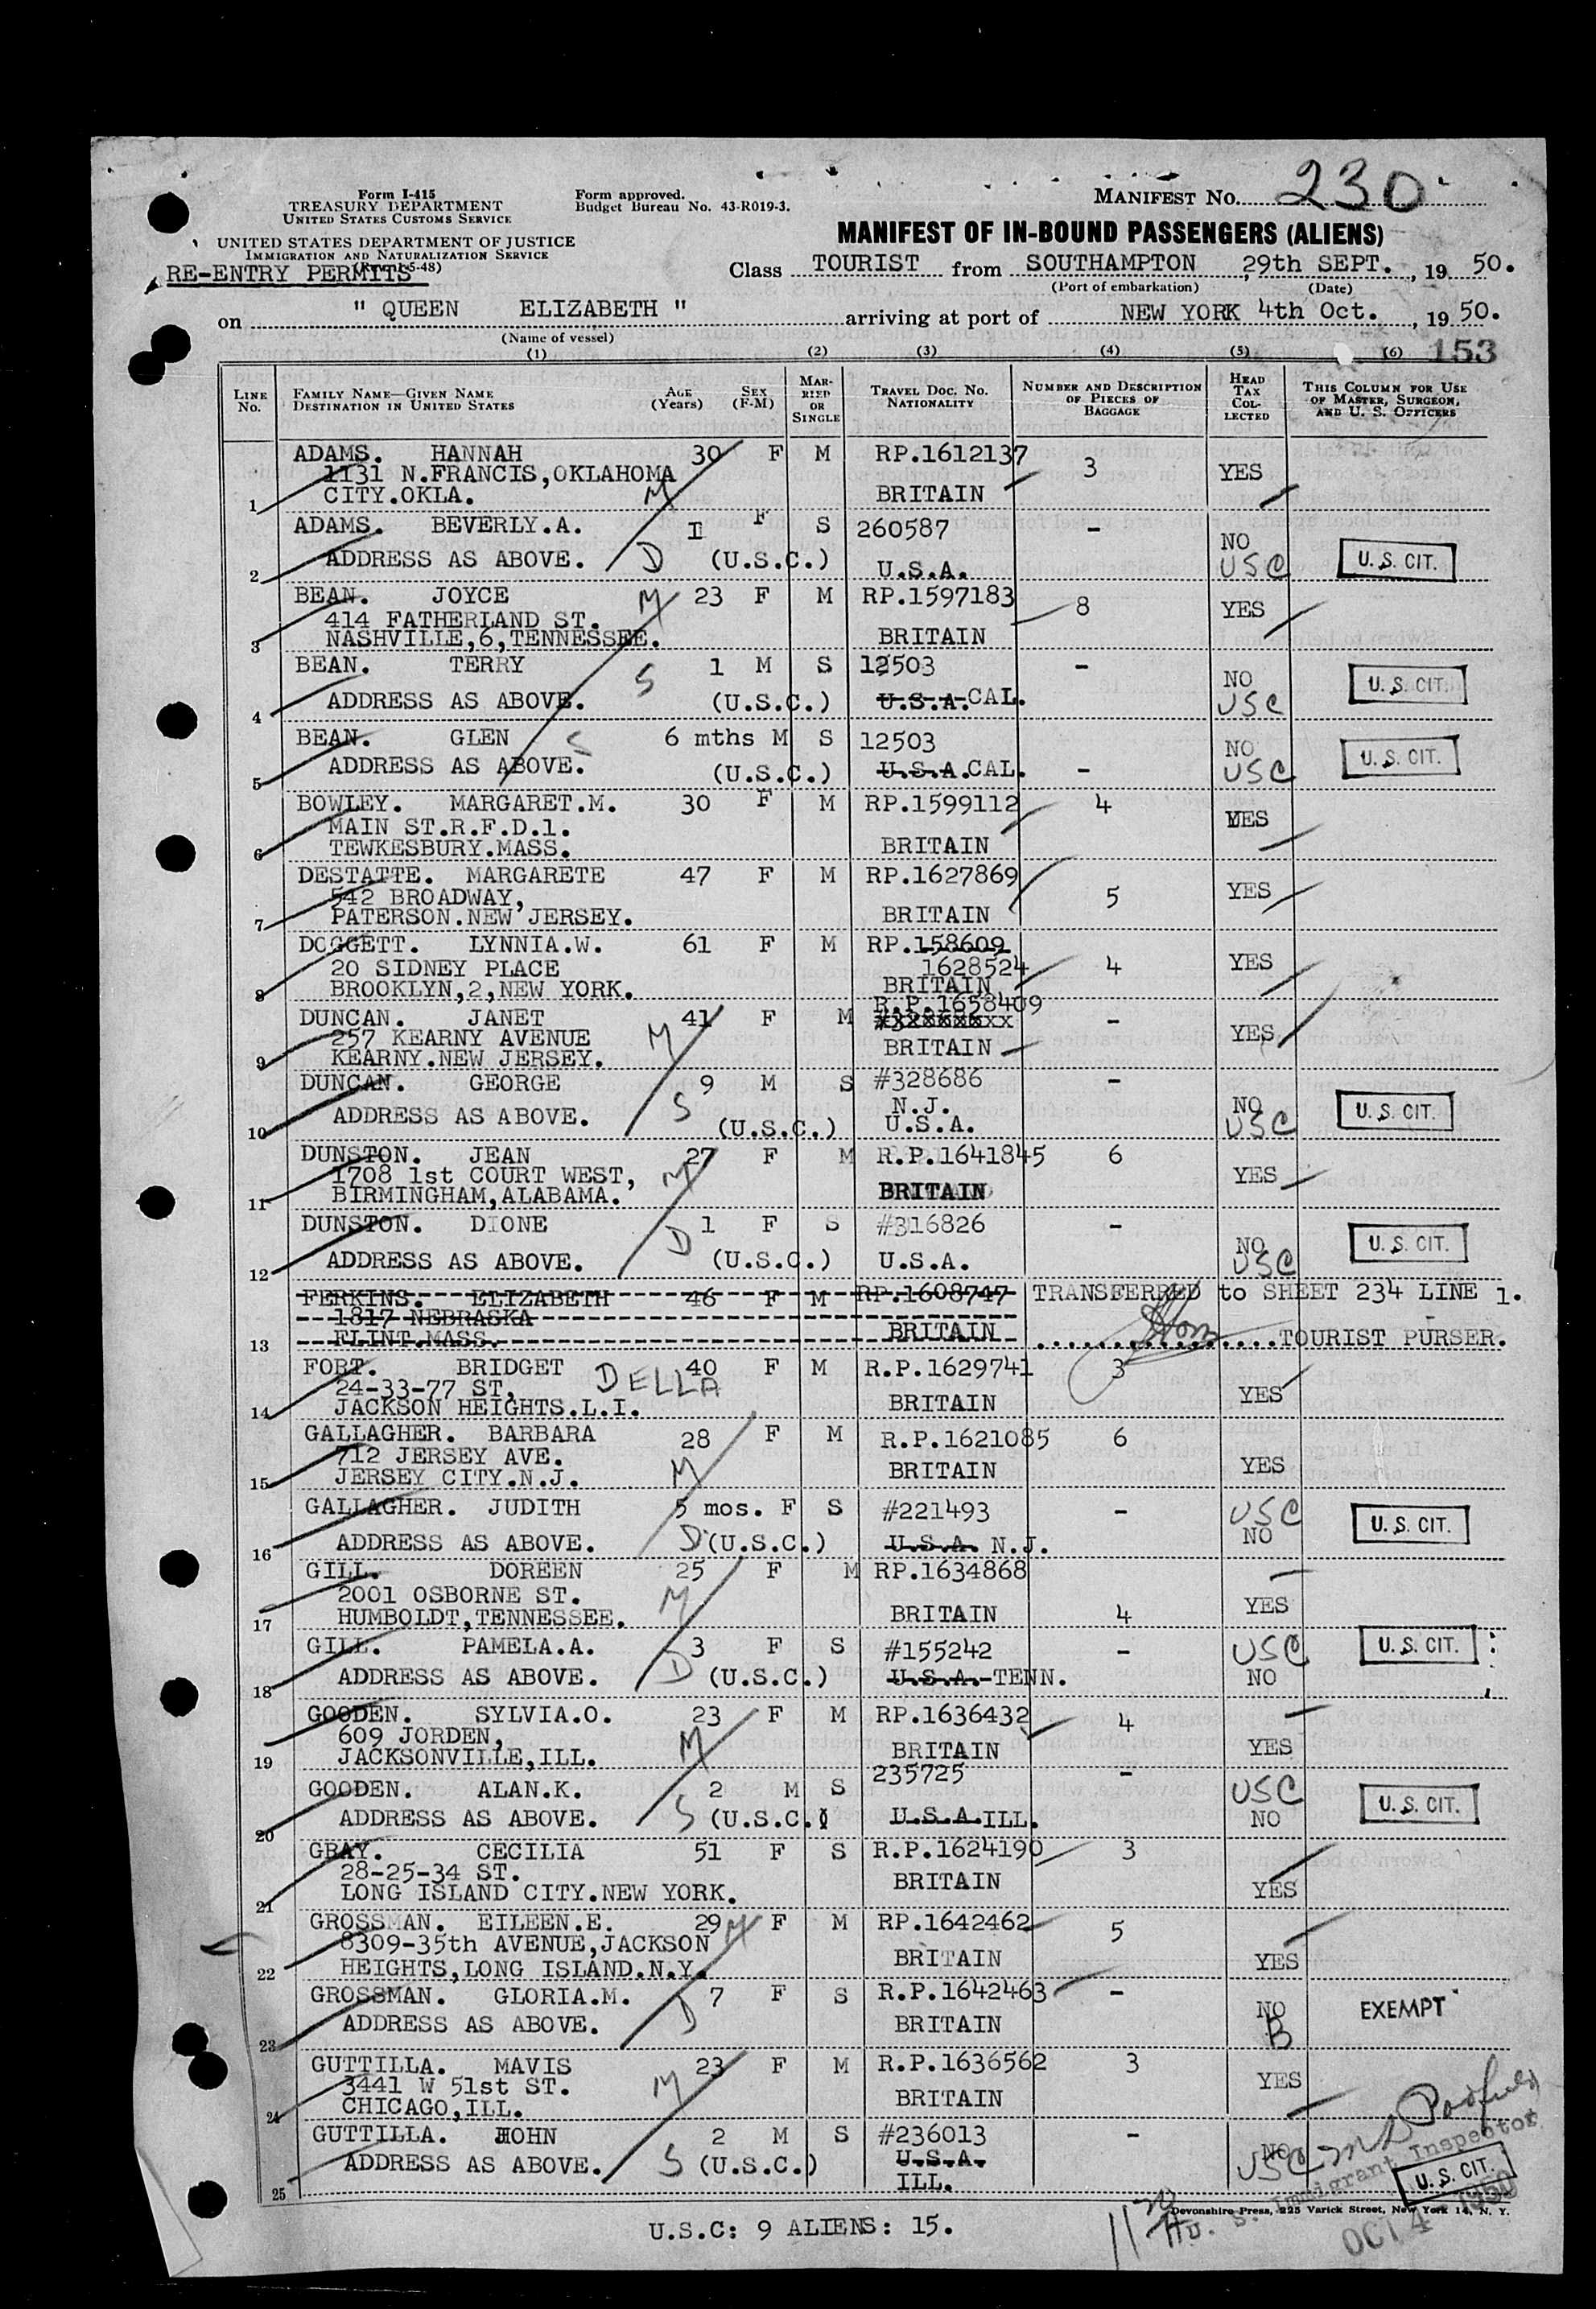 Form I-415
TREASURY DEPARTMENT
UNITED STATES CUSTOMS SERVICE
UNITED STATES DEPARTMENT OF JUSTICE
IMMIGRATION AND NATURALIZATION SERVICE
RE-ENTRY PERMITS
Form approved.
Budget Bureau No. 43-R019-3.
MANIFEST NO. 230
MANIFEST OF IN-BOUND PASSENGERS (ALIENS)
Class TOURIST from SOUTHAMPTON , 29th SEPT. , 19 50.
(Port of embarkation) (Date)
on " QUEEN ELIZABETH " arriving at port of NEW YORK 4th Oct. , 19 50.
(Name of vessel)
(1) (2) (3) (4) (5) (6) 153
LINE No. FAMILY NAME—GIVEN NAME DESTINATION IN UNITED STATES AGE (Years) SEX (F-M) MARRIED OR SINGLE TRAVEL DOC. NO. NATIONALITY NUMBER AND DESCRIPTION OF PIECES OF BAGGAGE HEAD TAX COLLECTED THIS COLUMN FOR USE OF MASTER, SURGEON, AND U. S. OFFICERS
ADAMS. HANNAH 30 F M RP.1612137 3 YES
1131 N.FRANCIS,OKLAHOMA M
1 CITY.OKLA. BRITAIN
ADAMS. BEVERLY.A. II F S 260587 - NO
2 ADDRESS AS ABOVE. D (U.S.C.) U.S.A. USC U. S. CIT.
BEAN. JOYCE M 23 F M RP.1597183 8 YES
414 FATHERLAND ST.
3 NASHVILLE,6,TENNESSEE. BRITAIN
BEAN. TERRY S 1 M S 12503 - NO
4 ADDRESS AS ABOVE. (U.S.C.) U.S.A. CAL. USC U. S. CIT.
BEAN. GLEN S 6 mths M S 12503 NO
5 ADDRESS AS ABOVE. (U.S.C.) U.S.A. CAL. - USC U. S. CIT.
BOWLEY. MARGARET.M. 30 F M RP.1599112 4 YES
MAIN ST.R.F.D.1.
6 TEWKESBURY.MASS. BRITAIN
DESTATTE. MARGARETE 47 F M RP.1627869 5 YES
542 BROADWAY,
7 PATERSON.NEW JERSEY. BRITAIN
DOGGETT. LYNNIA.W. 61 F M RP.158609 4 YES
20 SIDNEY PLACE 1628524
8 BROOKLYN,2,NEW YORK. BRITAIN
DUNCAN. JANET 41 F M R.P.1658409 - YES
257 KEARNY AVENUE M
9 KEARNY.NEW JERSEY. BRITAIN
DUNCAN. GEORGE 9 M S #328686 - NO
10 ADDRESS AS ABOVE. S (U.S.C.) N.J. U.S.A. USC U. S. CIT.
DUNSTON. JEAN 27 F M R.P.1641845 6 YES
1708 1st COURT WEST, M
11 BIRMINGHAM,ALABAMA. BRITAIN
DUNSTON. DIONE 1 F S #316826 - NO
12 ADDRESS AS ABOVE. D (U.S.C.) U.S.A. USC U. S. CIT.
FERKINS. ELIZABETH 46 F M RP.1608747 TRANSFERRED to SHEET 234 LINE 1.
1817 NEBRASKA
13 FLINT.MASS. BRITAIN TOURIST PURSER.
FORT. BRIDGET DELLA 40 F M R.P.1629741 3 YES
24-33-77 ST,
14 JACKSON HEIGHTS.L.I. BRITAIN
GALLAGHER. BARBARA 28 F M R.P.1621085 6 YES
712 JERSEY AVE.
15 JERSEY CITY.N.J. M BRITAIN
GALLAGHER. JUDITH 5 mos. F S #221493 - USC
16 ADDRESS AS ABOVE. D (U.S.C.) U.S.A. N.J. NO U. S. CIT.
GILL. DOREEN 25 F M RP.1634868
2001 OSBORNE ST. M
17 HUMBOLDT,TENNESSEE. BRITAIN 4 YES
GILL. PAMELA.A. 3 F S #155242 - USC U. S. CIT.
18 ADDRESS AS ABOVE. D (U.S.C.) U.S.A. TENN. NO
GOODEN. SYLVIA.O. 23 F M RP.1636432 4 YES
609 JORDEN,
19 JACKSONVILLE,ILL. M BRITAIN
GOODEN. ALAN.K. 2 M S 235725 - USC
20 ADDRESS AS ABOVE. S (U.S.C.) U.S.A. ILL. NO U. S. CIT.
GRAY. CECILIA 51 F S R.P.1624190 3 YES
28-25-34 ST.
21 LONG ISLAND CITY.NEW YORK. BRITAIN
GROSSMAN. EILEEN.E. 29 M F M RP.1642462 5 YES
8309-35th AVENUE,JACKSON
22 HEIGHTS,LONG ISLAND.N.Y. BRITAIN
GROSSMAN. GLORIA.M. 7 F S R.P.1642463 - NO EXEMPT
23 ADDRESS AS ABOVE. D BRITAIN B
GUTTILLA. MAVIS 23 F M R.P.1636562 3 YES
3441 W 51st ST. M
24 CHICAGO,ILL. BRITAIN
GUTTILLA. JOHN 2 M S #236013 - NO
ADDRESS AS ABOVE. S (U.S.C.) U.S.A. USC U. S. CIT.
25 ILL.
U. S. Immigrant Inspector
OCT 4 1950
Devonshire Press, 225 Varick Street, New York 14, N. Y.
U.S.C: 9 ALIENS: 15.